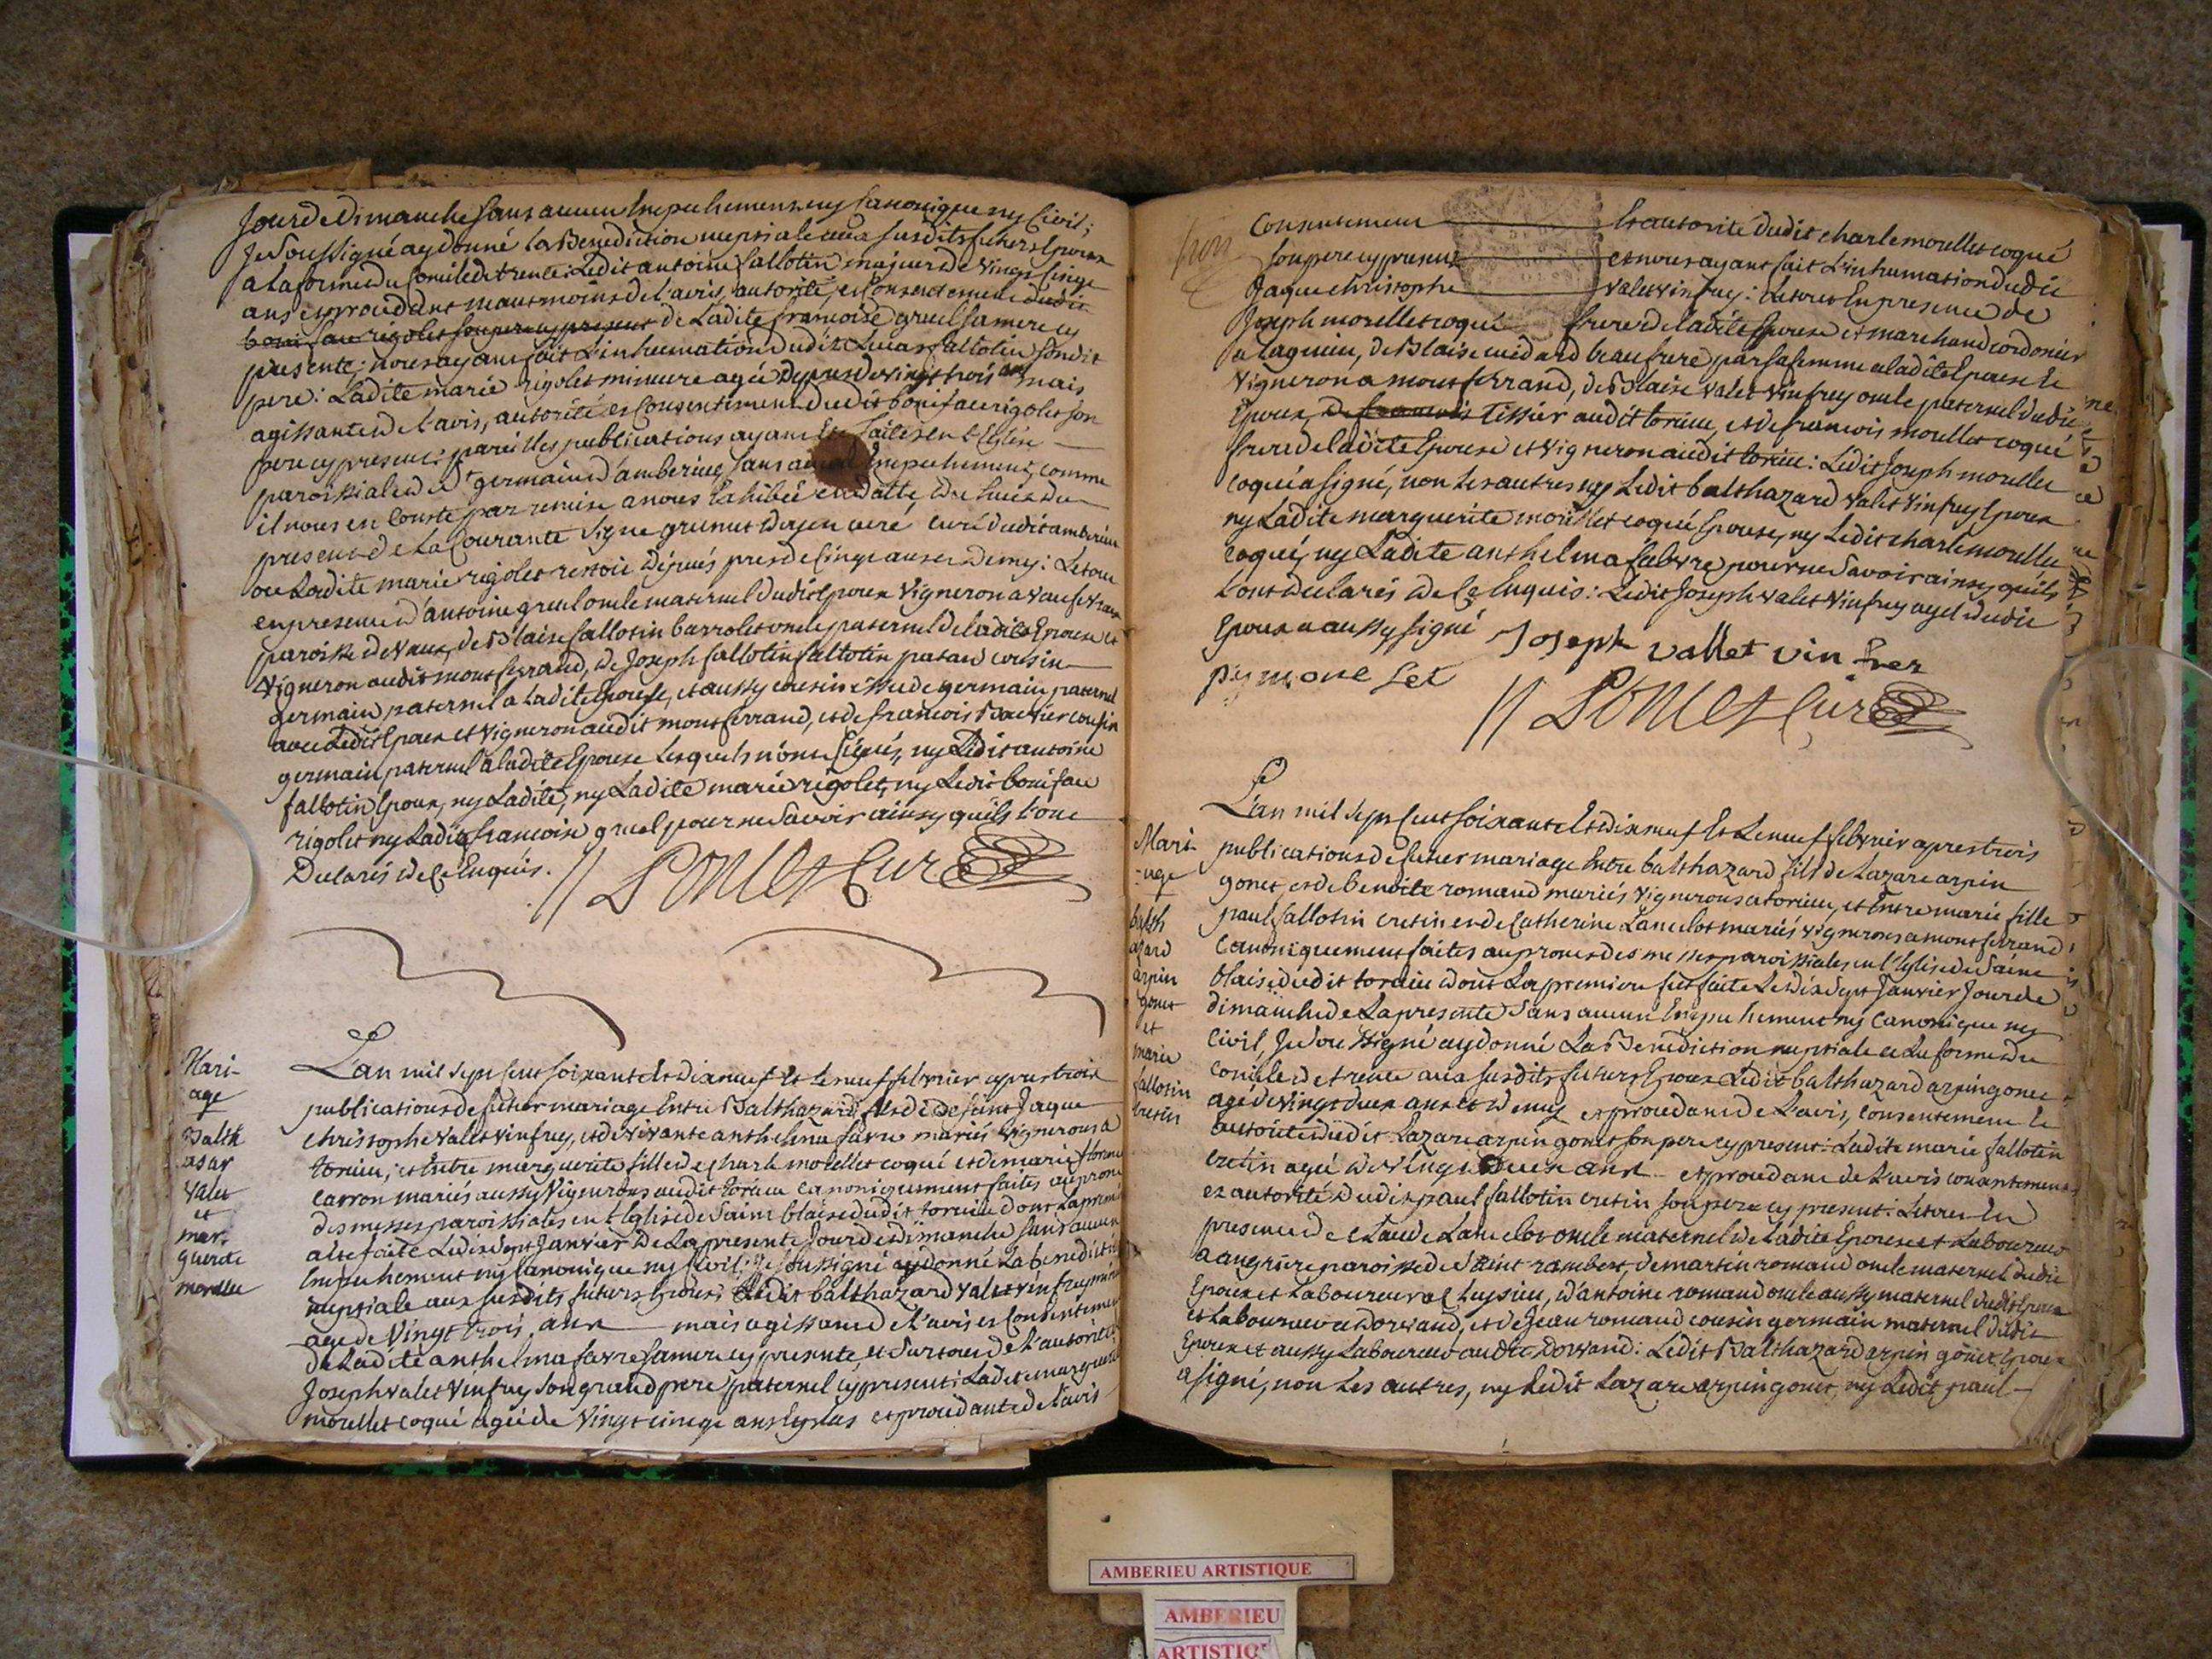 Jour de Dimanche sans aucun Empechement ny Canonique ny Civil;
Je Soussigné ay donné la Benediction nuptiale aux susdits futurs Epoux
a la forme du Concile de trente: Ledit antoine fallotin majeur de vingt cinq
ans et procedant neantmoins de l'avis, autorité, et Consentement dudit
boniface rigolet son pere cy present de Ladite francoise gruel sa mere cy
presente; nous ayant fait L'inhumation dudit Lucas fallotin sondit
pere: Ladite marie rigolet mineure agée Depuis de vingt trois ans mais
agissante de l'avis, autorité et Consentement dudit boniface rigolet son
pere cy present: pareilles publications ayant Eté faites en L'Eglise
paroissiale de St germain d'amberieu, sans aucun Empechement, comme
il nous en Conste par remise a nous Exhibée en datte, du huit du
present de La Courante signe grumet doyen curé, curé dudit amberieu
ou Ladite marie rigolet restoit Depuis pres de Cinq ans et Demy: Le tout
en presence d'antoine gruel oncle maternel dudit Epoux Vigneron a Vaux
paroisse de Vaux, de Blaise fallotin barrolet oncle paternel de ladite Epouse et
Vigneron audit montferrand, de Joseph fallotin fallotin patau cousin
germain paternel a Ladite Epouse, et aussy cousin issu de germain paternel
avec Ledit Epoux et Vigneron audit montferrand, et de francois Bauvier cousin
germain paternel a ladite Epouse Lesquels n'ont signés, ny Ledit antoine
fallotin Epoux, ny Ladite, ny Ladite marie rigolet, ny Ledit boniface
rigolet ny Ladite francoise gruel pour ne Savoir ainsy qu'ils L'ont
Declarés de Ce Enquis.
// Poncet Curé
Mari-
age
Balth
asar
Valet
et
mar-
guerite
morellet
L'an mil sept cent soixante et dixneuf Et le neuf febvrier apres trois
publications de futur mariage Entre Balthazard fils de defunt Jaque
Christophe Valet vinfrey, et de vivante anthelma favre mariés Vignerons a
torcieu; et Entre marguerite fille de Charle morellet coqué et de marie florence
carron mariés aussy Vignerons audit torcieu canoniquement faites au prone
des messes paroissiales en L'Eglise de Saint blaise dudit torcieu dont La premiere
a Eté faite Le dix sept Janvier de La presente Jour de dimanche sans aucun
Empechement ny Canonique ny Civil; Je soussigné ay donné La benediction
nuptiale aux susdits futurs Epoux: Ledit balthazard valet vinfrey mineur
agé de Vingt trois ans mais agissant de L'avis et Consentement
de Ladite anthelma favre sa mere cy presente, et surtout de L'autorité
Joseph valet vinfrey son grand pere paternel cy present: Ladite marguerite
morellet coqué agée de Vingt cinq ans et plus et procedante de L'avis
Consentement Et autorite dudit charle morellet coqué
son pere cy present et nous ayant fait L'inhumation dudit
Jaque Christophe Valet vinfrey: Le tout En presence de
Joseph morellet coqué frere de ladite Epouse et marchand cordonier
a lagnieu, de Blaise cuédard beau frere par sa femme a ladite Epouse et
Vigneron a montferrand, de Blaise Valet vinfrey oncle paternel dudit
Epoux, de francois Tissier audit torcieu, et de francois morellet coqué
frere de ladite Epouse et Vigneron audit torcieu: Ledit Joseph morellet
coqué a signé, non Les autres ny Ledit balthazard Valet Vinfrey Epoux
ny Ladite marguerite morellet coqué Epouse, ny Ledit charle morellet
coqué, ny Ladite anthelma fabvre pour ne Savoir ainsy qu'ils
L'ont declarés de Ce Enquis: Ledit Joseph valet Vinfrey ayel dudit
Epoux a aussy signé Joseph vallet vin frer
// Poncet Curé
Mari-
-age
balth
azard
arpin
gonet
et
marie
fallotin
cretin
L'an mil sept Cent soixante et dixneuf Et Le neuf febvrier apres trois
publications de futur mariage Entre balthazard fils de Lazare arpin
gonet, et de benoite romand mariés Vignerons a torcieu, et Entre marie fille
paul fallotin cretin et de Catherine Lancelot mariés vignerons a montferrand
Canoniquement faites au prone des messes paroissiales en l'Eglise de Saint
blaise dudit torcieu dont La premiere fut faite Le dix sept Janvier Jour de
dimanche de La presente Sans aucun Empechement ny Canonique ny
Civil, Je Soussigné ay donné La Benediction nuptiale a La forme du
Concile de trente aux susdits futurs Epoux Ledit balthazard arpin gonet
agé de Vingt deux ans et demy et procedant de L'avis, consentement Et
autorité dudit Lazare arpin gonet son pere cy present: Ladite marie fallotin
cretin agée de Vingt Deux ans et procedant de L'avis consentement
et autorité dudit paul fallotin cretin son pere cy present. Le tout En
presence de Claude Lancelot oncle maternel de Ladite Epouse et Laboureur
a angrière paroisse de Saint rambert, de martin romand oncle maternel dudit
Epoux et Laboureur a Cleyzieu, d'antoine romand oncle aussy maternel dudit Epoux
et Laboureur a Dorvand, et de Jean romand cousin germain maternel dudit
Epoux et aussy Laboureur audit Dorvand: Ledit Balthazard arpin gonet Epoux
a signé, non Les autres, ny Ledit Lazare arpin gonet, ny Ledit paul
AMBERIEU ARTISTIQUE
AMBERIEU
ARTISTIQ